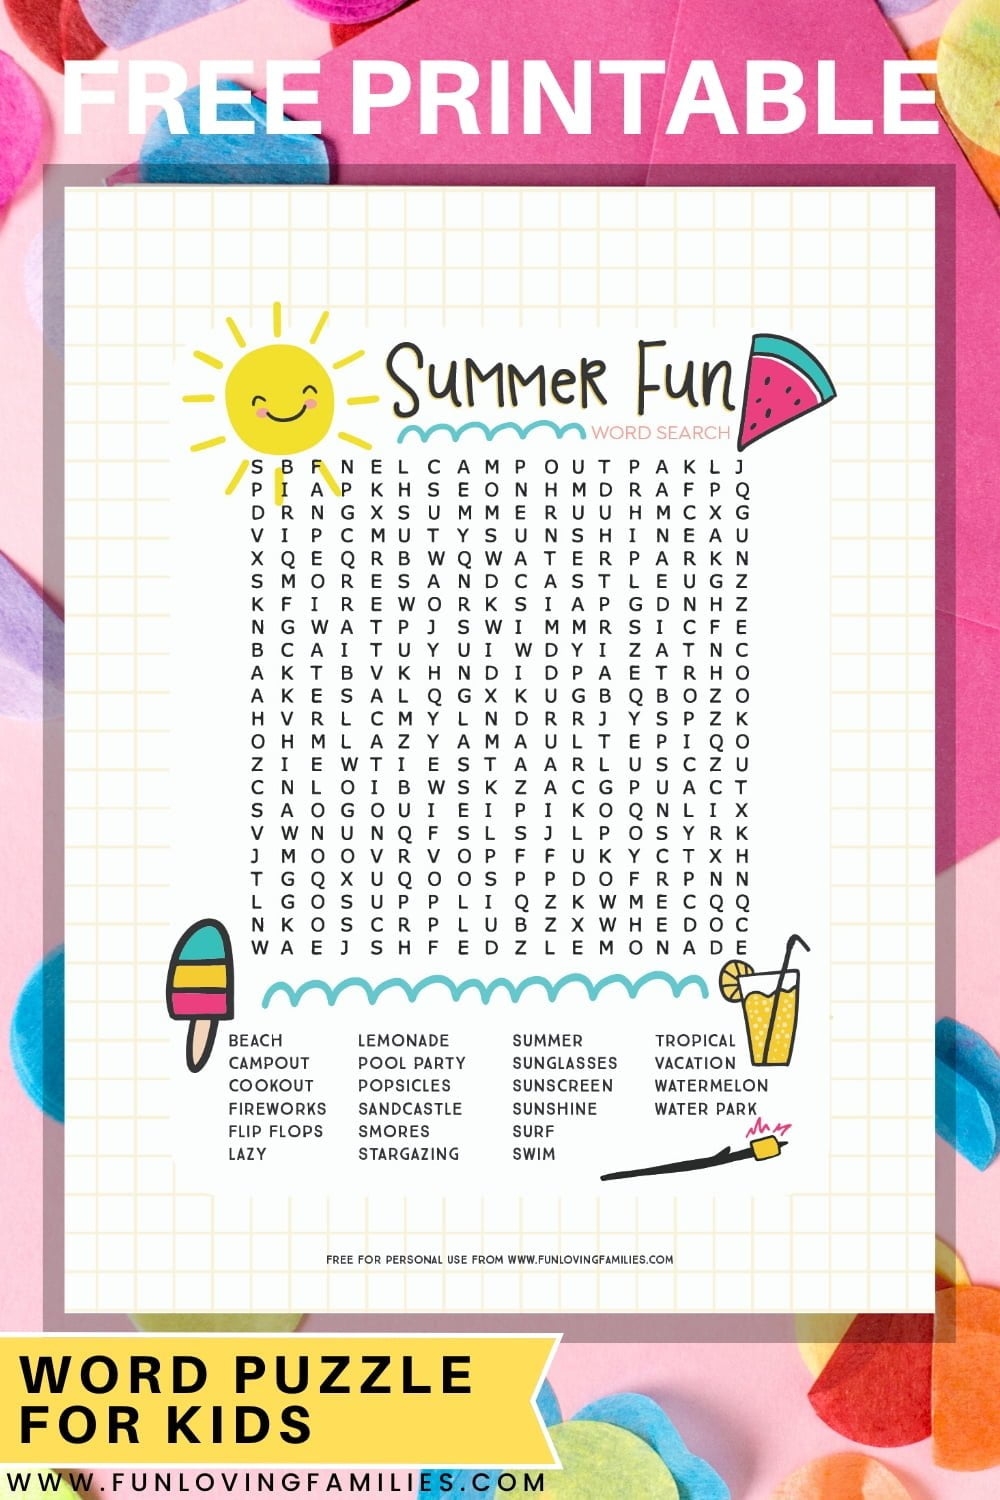 FREE PRINTABLE
SUMMER FUN
WORD SEARCH
S B F N E L C A M P O U T P A K L J
P I A P K H S E O N H M D R A F P Q
D R N G X S U M M E R U U H M C X G
V I P C M U T Y S U N S H I N E A U
X Q E Q R B W Q W A T E R P A R K N
S M O R E S A N D C A S T L E U G Z
K F I R E W O R K S I A P G D N H Z
N G W A T P J S W I M M R S I C F E
B C A I T U Y U I W D Y I Z A T N C
A K T B V K H N D I D P A E T R H O
A K E S A L Q G X K U G B Q B O Z O
H V R L C M Y L N D R R J Y S P Z K
O H M L A Z Y A M A U L T E P I Q O
Z I E W T I E S T A A R L U S C Z U
C N L O I B W S K Z A C G P U A C T
S A O G O U I E I P I K O Q N L I X
V W N U N Q F S L S J L P O S Y R K
J M O O V R V O P F F U K Y C T X H
T G Q X U Q O O S P P D O F R P N N
L G O S U P P L I Q Z K W M E C Q Q
N K O S C R P L U B Z X W H E D O C
W A E J S H F E D Z L E M O N A D E
BEACH
CAMPOUT
COOKOUT
FIREWORKS
FLIP FLOPS
LAZY
LEMONADE
POOL PARTY
POPSICLES
SANDCASTLE
SMORES
STARGAZING
SUMMER
SUNGLASSES
SUNSCREEN
SUNSHINE
SURF
SWIM
TROPICAL
VACATION
WATERMELON
WATER PARK
FREE FOR PERSONAL USE FROM WWW.FUNLOVINGFAMILIES.COM
WORD PUZZLE
FOR KIDS
WWW.FUNLOVINGFAMILIES.COM